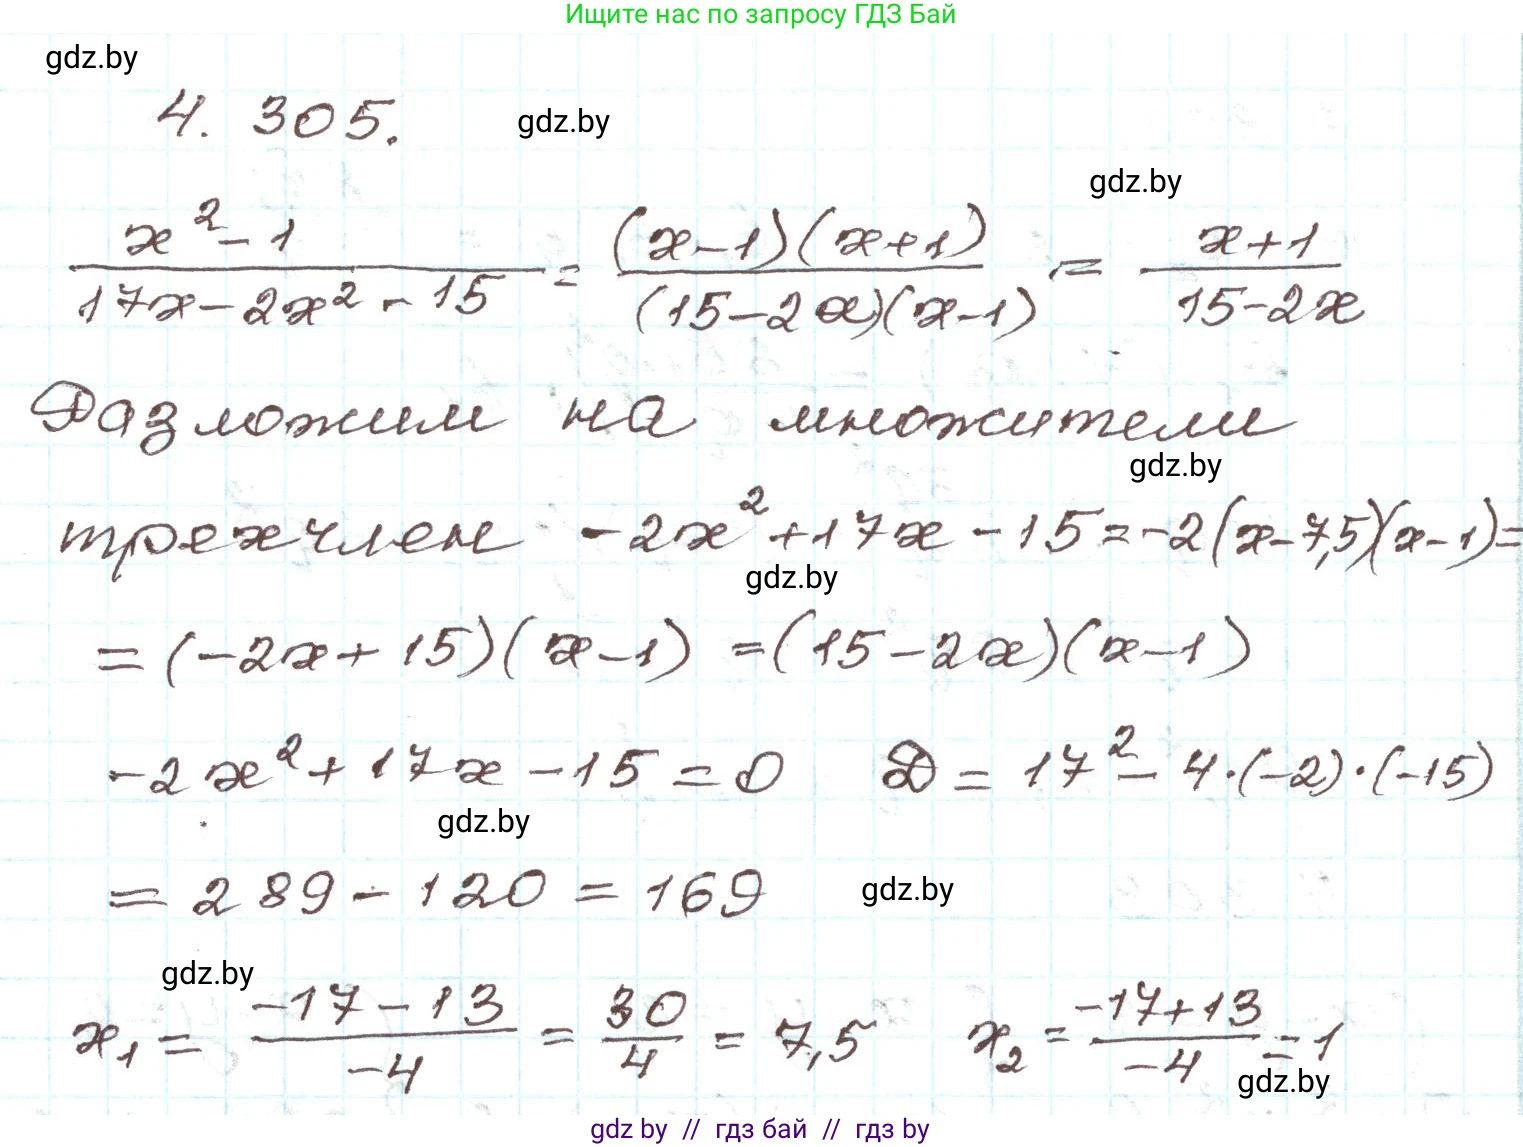 Ищите нас по запросу ГДЗ Бай
gdz.by
4. 305.
gdz.by
gdz.by
x² - 1 / 17x - 2x² - 15 = (x-1)(x+1) / (15-2x)(x-1) = x+1 / 15-2x
Разложим на множители
gdz.by
трехчлен -2x² + 17x - 15 = -2(x-7,5)(x-1) =
gdz.by
= (-2x + 15)(x-1) = (15-2x)(x-1)
-2x² + 17x - 15 = 0 D = 17² - 4·(-2)·(-15)
gdz.by
= 289 - 120 = 169
gdz.by
gdz.by
x₁ = -17-13 / -4 = 30 / 4 = 7,5 x₂ = -17+13 / -4 = 1
gdz.by
gdz by // гдз бай // гдз by